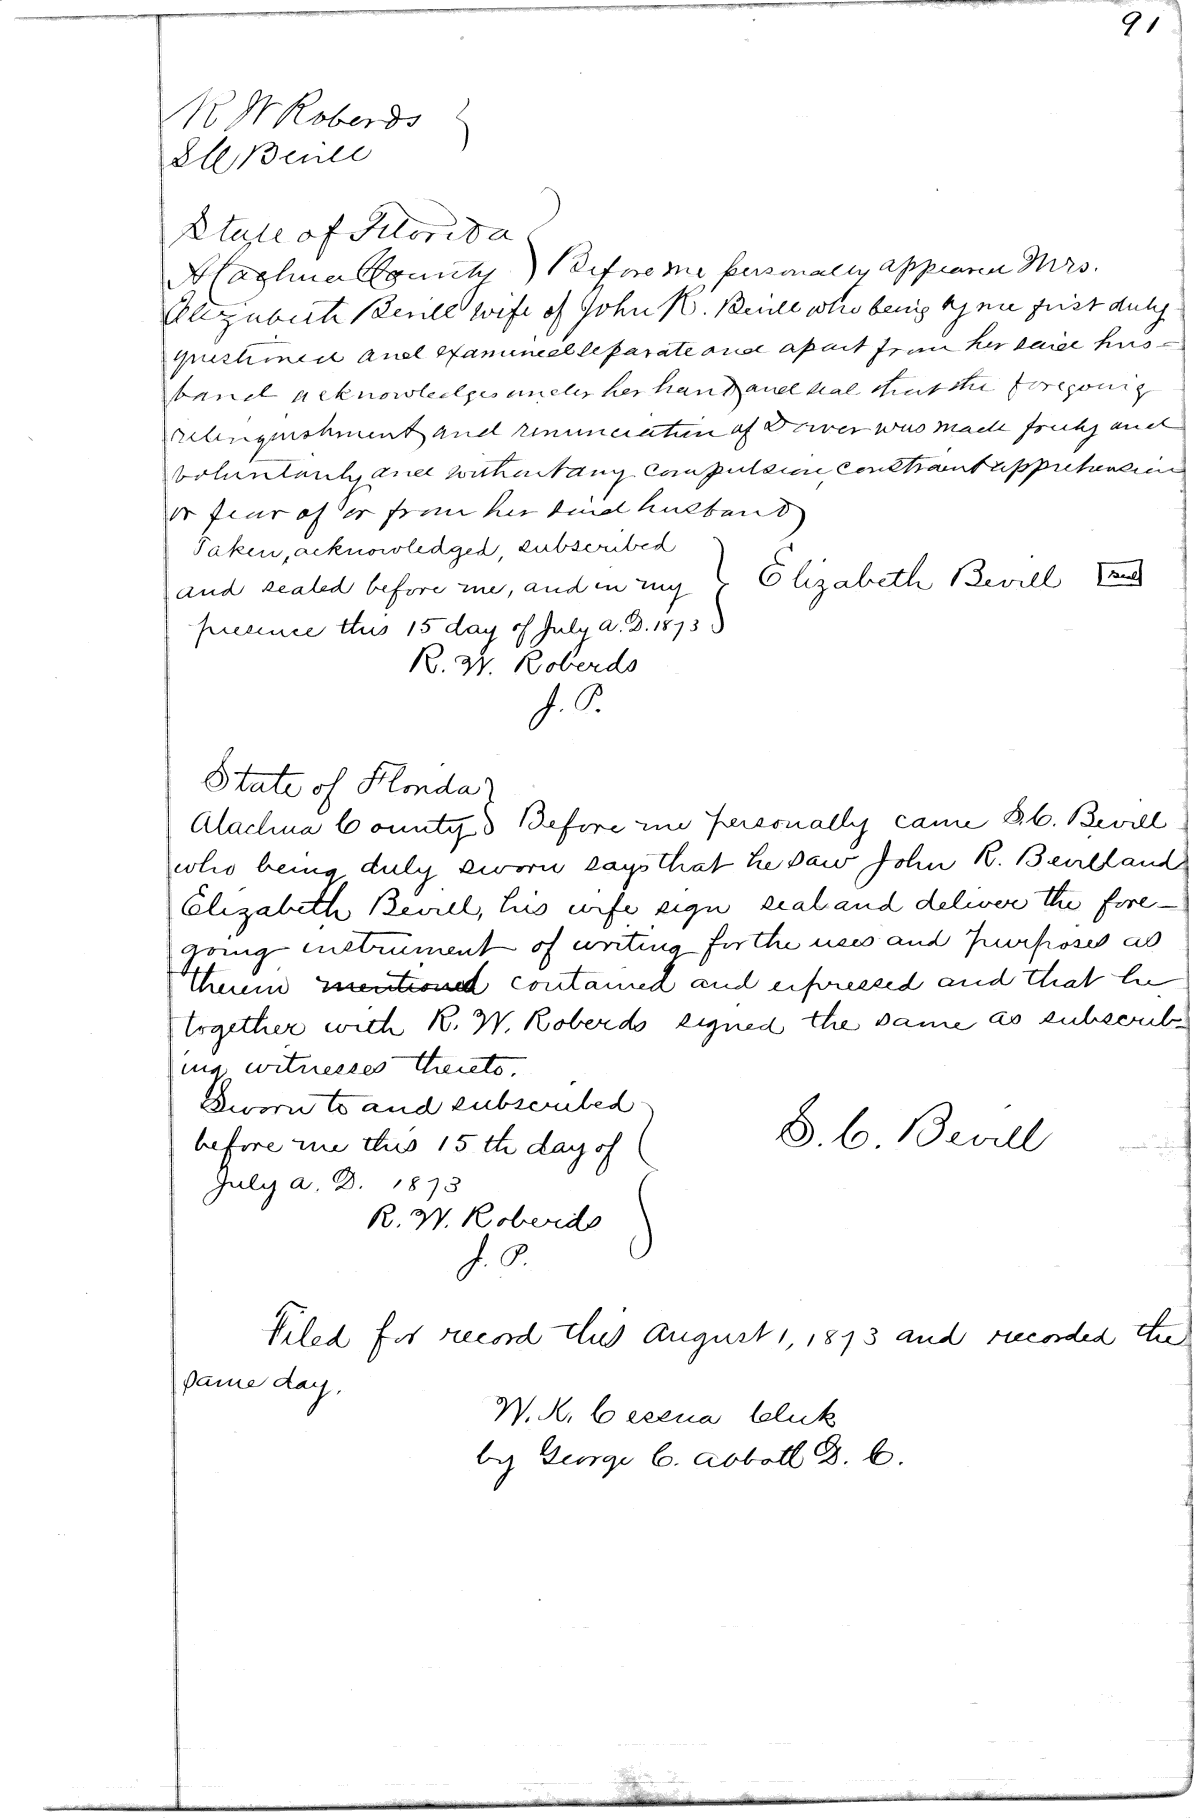 91
R W Roberds
S C Bevill
State of Florida
Alachua County } Before me personally appeared Mrs.
Elizabeth Bevill wife of John R. Bevill who being by me first duly
questioned and examined separate and apart from her said hus=
band acknowledges under her hand and seal that the foregoing
relinquishment and renunciation of Dower was made freely and
voluntarily and without any compulsion, constraint apprehension
or fear of or from her said husband
Taken, acknowledged, subscribed
and sealed before me, and in my } Elizabeth Bevill Seal
presence this 15 day of July A.D. 1873
R. W. Roberds
J. P.
State of Florida
Alachua County } Before me personally came S.C. Bevill
who being duly sworn says that he saw John R. Bevill and
Elizabeth Bevill, his wife sign seal and deliver the fore-
going instrument of writing for the uses and purposes as
therein mentioned contained and expressed and that he
together with R. W. Roberds signed the same as subscrib-
ing witnesses thereto.
Sworn to and subscribed
before me this 15th day of } S. C. Bevill
July A. D. 1873
R. W. Roberds
J. P.
Filed for record this August 1, 1873 and recorded the
same day.
W. K. Cessna Clerk
by George C. Abbott D. C.